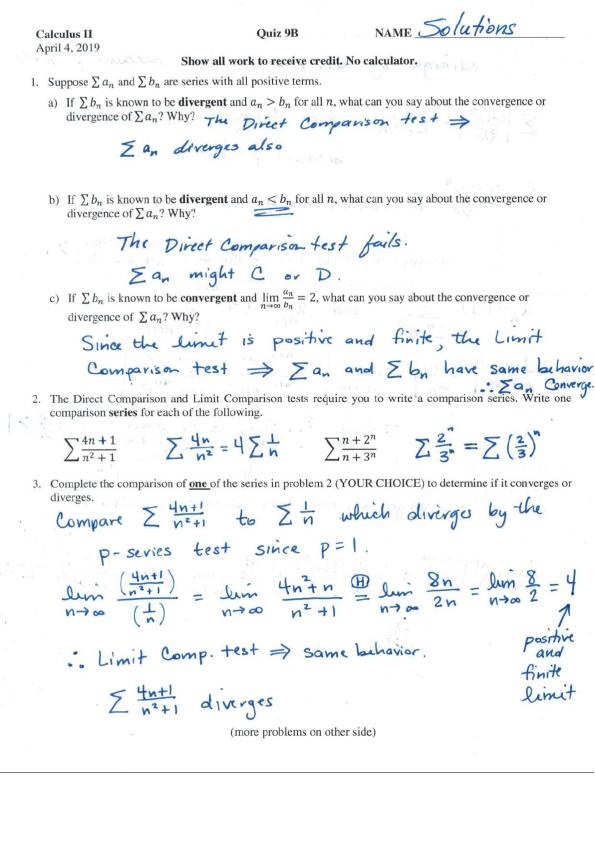 Calculus II Quiz 9B NAME Solutions
April 4, 2019
Show all work to receive credit. No calculator.
1. Suppose ∑ aₙ and ∑ bₙ are series with all positive terms.
a) If ∑ bₙ is known to be divergent and aₙ > bₙ for all n, what can you say about the convergence or
divergence of ∑ aₙ? Why? The Direct Comparison test ⇒
∑ aₙ diverges also
b) If ∑ bₙ is known to be divergent and aₙ < bₙ for all n, what can you say about the convergence or
divergence of ∑ aₙ? Why?
The Direct Comparison test fails.
∑ aₙ might C or D.
c) If ∑ bₙ is known to be convergent and lim n→∞ aₙ/bₙ = 2, what can you say about the convergence or
divergence of ∑ aₙ? Why?
Since the limit is positive and finite, the Limit
Comparison test ⇒ ∑ aₙ and ∑ bₙ have same behavior
∴ ∑ aₙ Converge.
2. The Direct Comparison and Limit Comparison tests require you to write a comparison series. Write one
comparison series for each of the following.
∑ (4n + 1)/(n² + 1) ∑ 4n/n² = 4 ∑ 1/n ∑ (n + 2ⁿ)/(n + 3ⁿ) ∑ 2ⁿ/3ⁿ = ∑ (2/3)ⁿ
3. Complete the comparison of one of the series in problem 2 (YOUR CHOICE) to determine if it converges or
diverges.
Compare ∑ (4n+1)/(n²+1) to ∑ 1/n which diverges by the
p-series test since p = 1.
lim n→∞ ((4n+1)/(n²+1))/(1/n) = lim n→∞ (4n²+n)/(n²+1) Ⓗ= lim n→∞ 8n/2n = lim n→∞ 8/2 = 4
↗
positive
and
finite
limit
∴ Limit Comp. test ⇒ same behavior.
∑ (4n+1)/(n²+1) diverges
(more problems on other side)